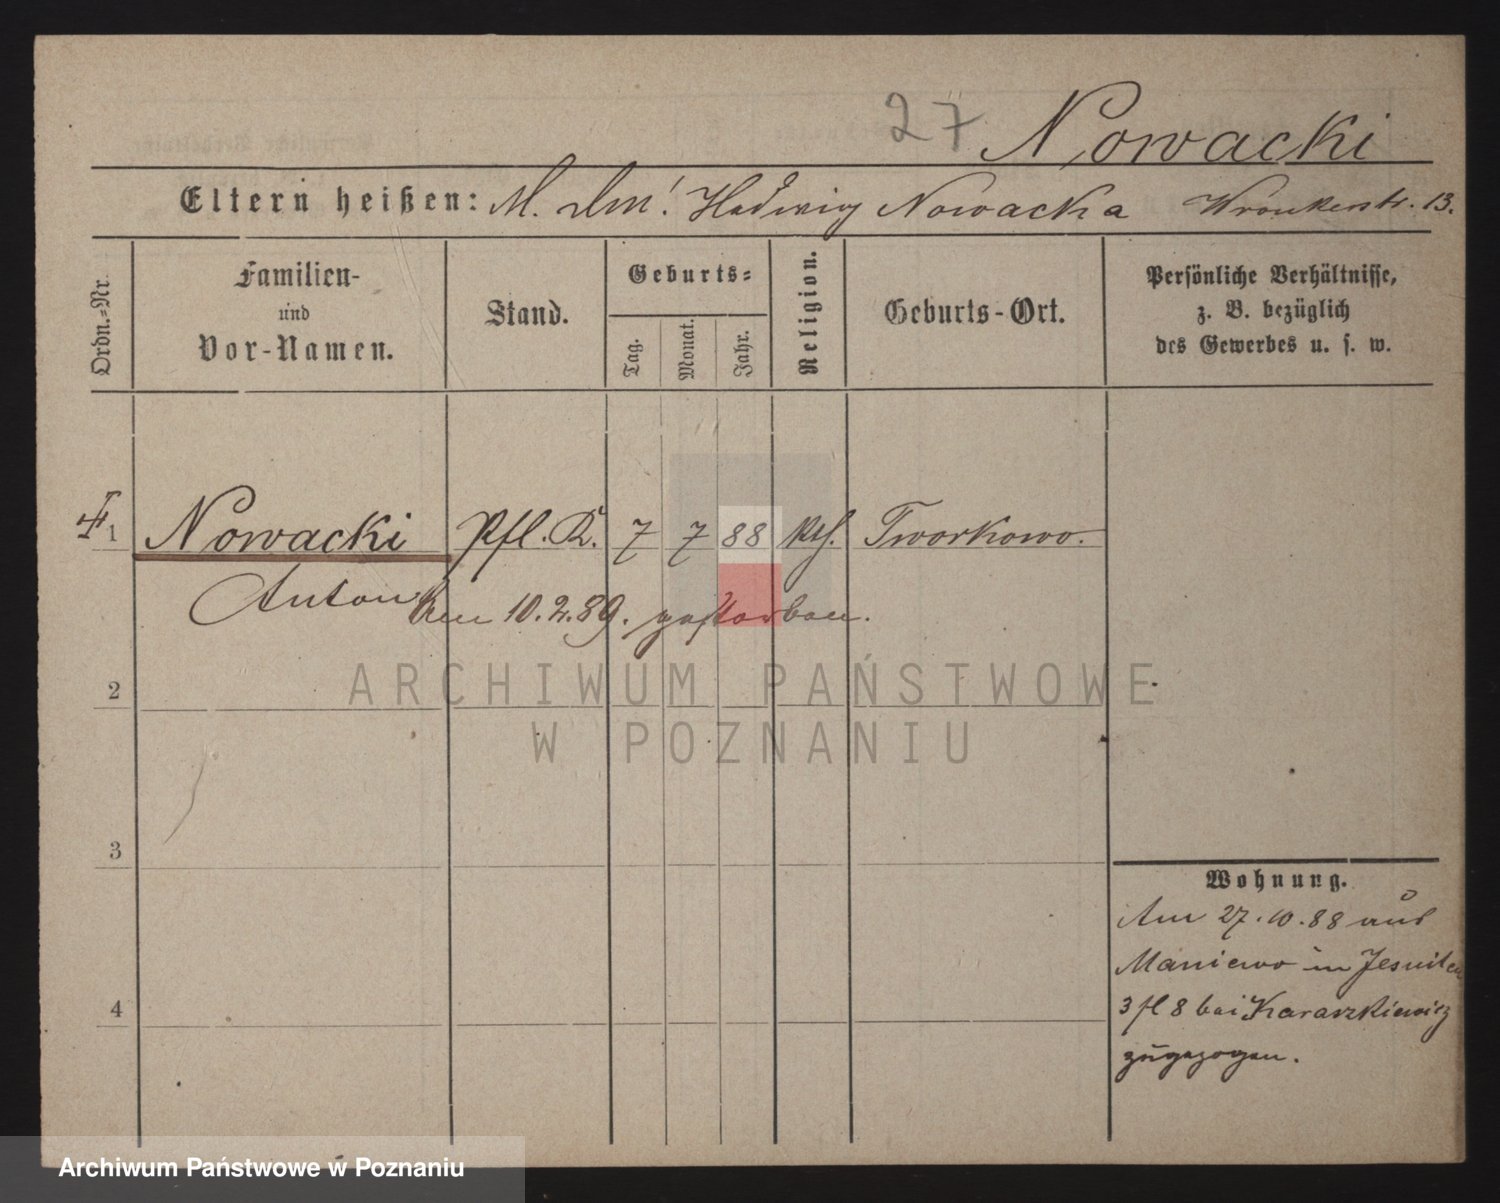 27 Nowacki
Eltern heißen: M. Hedwig Nowacka Wronkerstr. 13.
Ordn.=Nr.
Familien-
und
Vor-Namen.
Stand.
Geburts=
Tag.
Monat.
Jahr.
Religion.
Geburts-Ort.
Persönliche Verhältnisse,
z. B. bezüglich
des Gewerbes u. s. w.
1 Nowacki Pfl. K. 7 7 88 kth. Tworkowo.
Anton am 10.2.89. gestorben.
ARCHIWUM PAŃSTWOWE
W POZNANIU
2
3
4
Wohnung.
Am 27.10.88 aus
Maniewo in Jesuiten
3 fl 8 bei Karaszkiewicz
zugezogen.
Archiwum Państwowe w Poznaniu